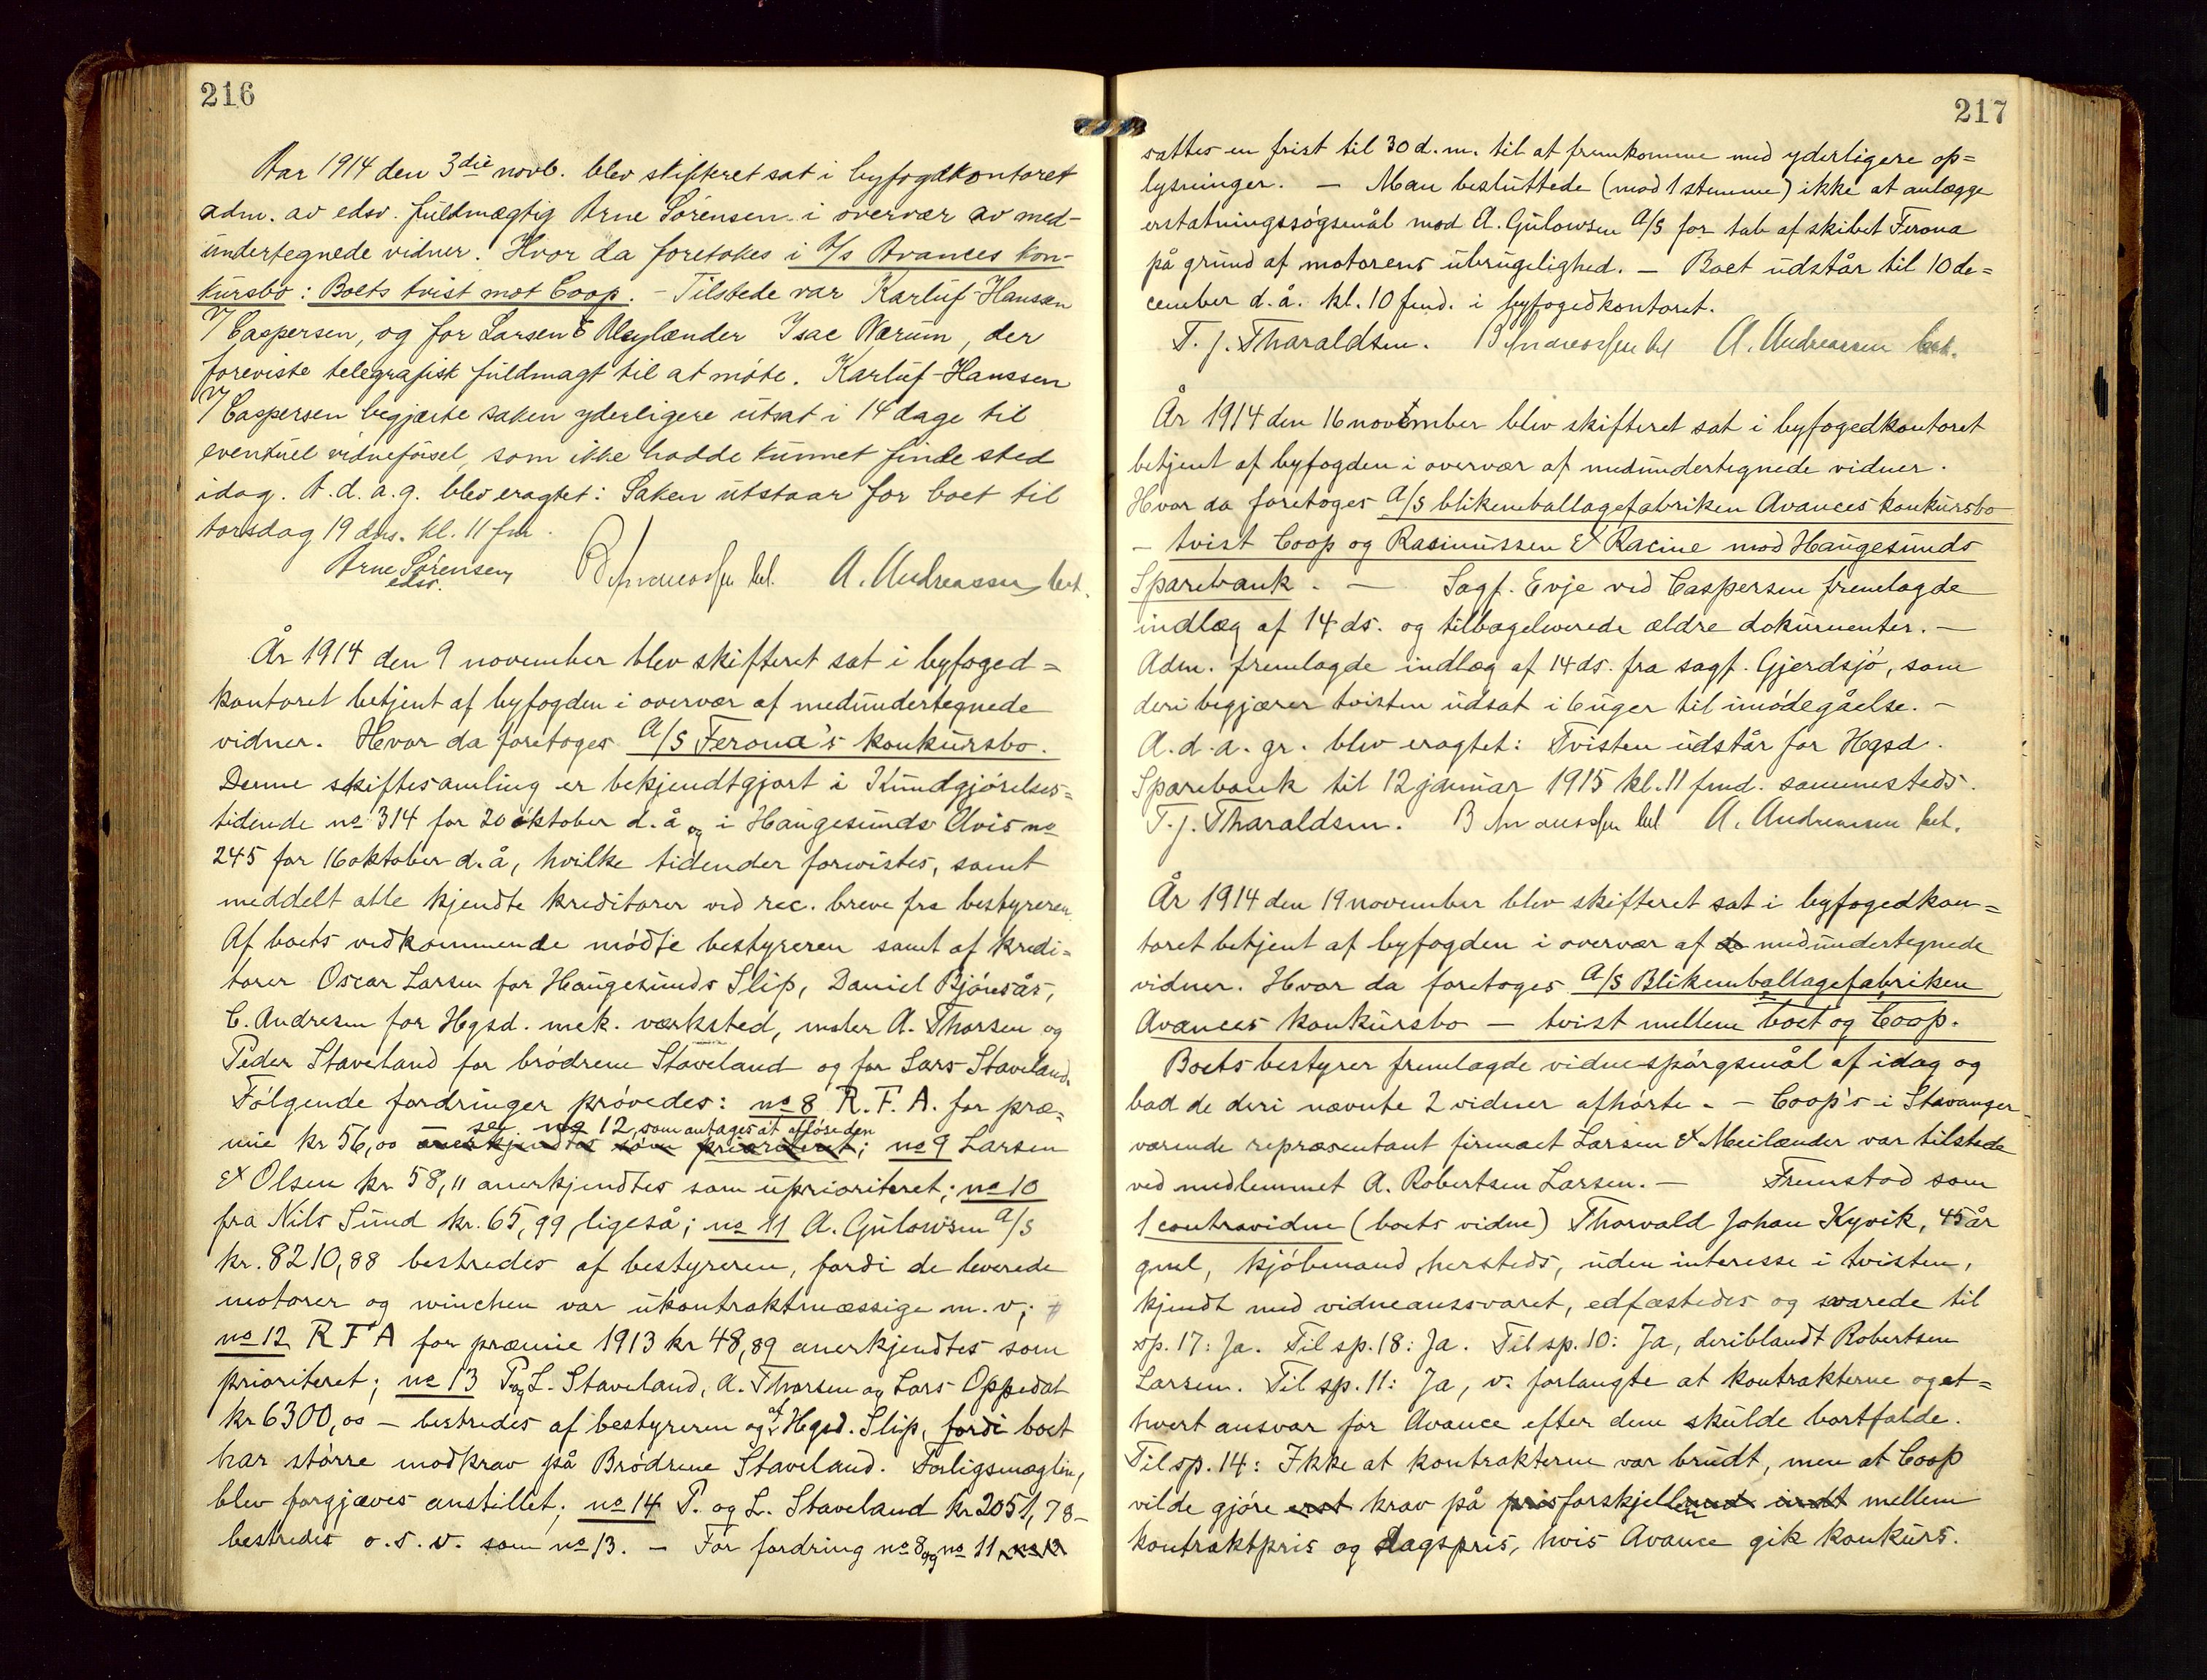 216
Aar 1914 den 3die novb. blev skifteret sat i byfogdkontoret
adm. av edsv. fuldmægtig Arne Sörensen i overvær av med-
undertegnede vidner. Hvor da foretokes i A/s Avances kon-
kursbo: Boets tvist mot Coop. - Tilstede var Karluf-Hanssen
v/ Caspersen, og for Larsen & Meylænder Isac Nærum, der
foreviste telegrafisk fuldmagt til at möte. Karluf-Hanssen
v/ Caspersen begjærte saken yderligere utsat i 14 dage til
eventuel vidneförsel, som ikke hadde kunnet finde sted
idag. A. d. a. g. blev eragtet: Saken utstaar for boet til
torsdag 19 dns. kl. 11 fm.
Arne Sörensen A. Andreassen bet.
edsv.
År 1914 den 9 november blev skifteret sat i byfoged=
kontoret betjent af byfogden i overvær af medundertegnede
vidner. Hvor da foretoges A/S Ferona's konkursbo.
Denne skiftesamling er bekjendtgjort i Kundgjörelses=
tidende no 314 for 20 oktober d. å. og i Haugesunds Avis no
245 for 16 oktober d. å, hvilke tidender forevistes, samt
meddelt alle kjendte kreditorer ved rec. breve fra bestyreren.
Af boets vedkommende mödte bestyreren samt af kredi=
torer Oscar Larsen for Haugesunds Slip, Daniel Bjönsås,
C. Andresen for Hgsd. mek. værksted, maler A. Thorsen og
Peder Staveland for brödrene Staveland og for Lars Staveland.
Fölgende fordringer prövedes: no 8 R. F. A. for præ=
see no 12, som antages at aflöse den
mie kr 56,00 anerkjendtes som prioriteret; no 9 Larsen
& Olsen kr 58,11 anerkjendtes som uprioriteret; no 10
fra Nils Sund kr. 65,99, ligeså; no 11 A. Gulowsen A/S
kr. 8210,88 bestredes af bestyreren, fordi de leverede
motorer og winchen var ukontraktmæssige m. v.;
no 12 R F A for præmie 1913 kr 48,89 anerkjendtes som
prioriteret; no 13 P. og L. Staveland, A. Thorsen og Lars Oppedal
kr 6300,00 - bestredes af bestyreren og af Hgsd. Slip, fordi boet
har större modkrav på Brödrene Staveland. Forligsmægling
blev forgjæves anstillet; no 14 P. og L. Staveland kr 2051,78 -
bestredes o. s. v. som no 13. - For fordring no 8 og no 11, no 13
217
sattes en frist til 30 d. m. til at fremkomme med yderligere op=
lysninger. - Man besluttede (mod 1 stemme) ikke at anlægge
erstatningssögsmål mod A. Gulowsen A/S for tab af skibet Ferona
på grund af motorens ubrugelighed. - Boet udstår til 10 de=
cember d. å. kl. 10 fmd. i byfogedkontoret.
T. J. Tharaldsen. A. Andreassen bet.
År 1914 den 16 november blev skifteret sat i byfogedkontoret
betjent af byfogden i overvær af medundertegnede vidner.
Hvor da foretoges A/S blikemballagefabriken Avances konkursbo
- tvist Coop og Rasmussen & Racine mod Haugesunds
Sparebank. - Sagf. Evje ved Caspersen fremlagde
indlæg af 14 ds. og tilbageleverede ældre dokumenter. -
Adm. fremlagde indlæg af 14 ds. fra sagf. Gjerdsjö, som
deri begjærer tvisten udsat i 6 uger til imödegåelse. -
A. d. a. gr. blev eragtet: Tvisten udstår for Hgsd.
Sparebank til 12 januar 1915 kl. 11 fmd. sammesteds.
T. J. Tharaldsen. A. Andreassen bet.
År 1914 den 19 november blev skifteret sat i byfogedkon=
toret betjent af byfogden i overvær af medundertegnede
vidner. Hvor da foretoges A/S Blikemballagefabriken
Avances konkursbo - tvist mellem boet og Coop.
Boets bestyrer fremlagde vidnespörgsmål af idag og
bad de deri nævnte 2 vidner afhörte. - Coop's i Stavanger
værende repræsentant firmaet Larsen & Meilænder var tilstede
ved medlemmet A. Robertsen Larsen. - Fremstod som
1 contravidne (boets vidne) Thorvald Johan Kyvik, 45 år
gml, kjöbmand, hersteds, uden interesse i tvisten,
kjendt med vidneansvaret, edfæstedes og svarede til
sp. 17: Ja. Til sp. 18: Ja. Til sp. 10: Ja, deriblandt Robertsen
Larsen. Til sp. 11: Ja, v. forlangte at kontrakterne og et=
hvert ansvar for Avance efter dem skulde bortfalde.
Til sp. 14: Ikke at kontrakterne var brudt, men at Coop
vilde gjöre erst krav på prisforskjellen mellem
kontraktpris og dagspris, hvis Avance gik konkurs.